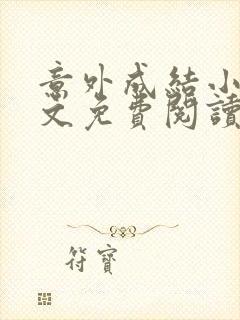 意外成結小
文免費閱讀
符寶